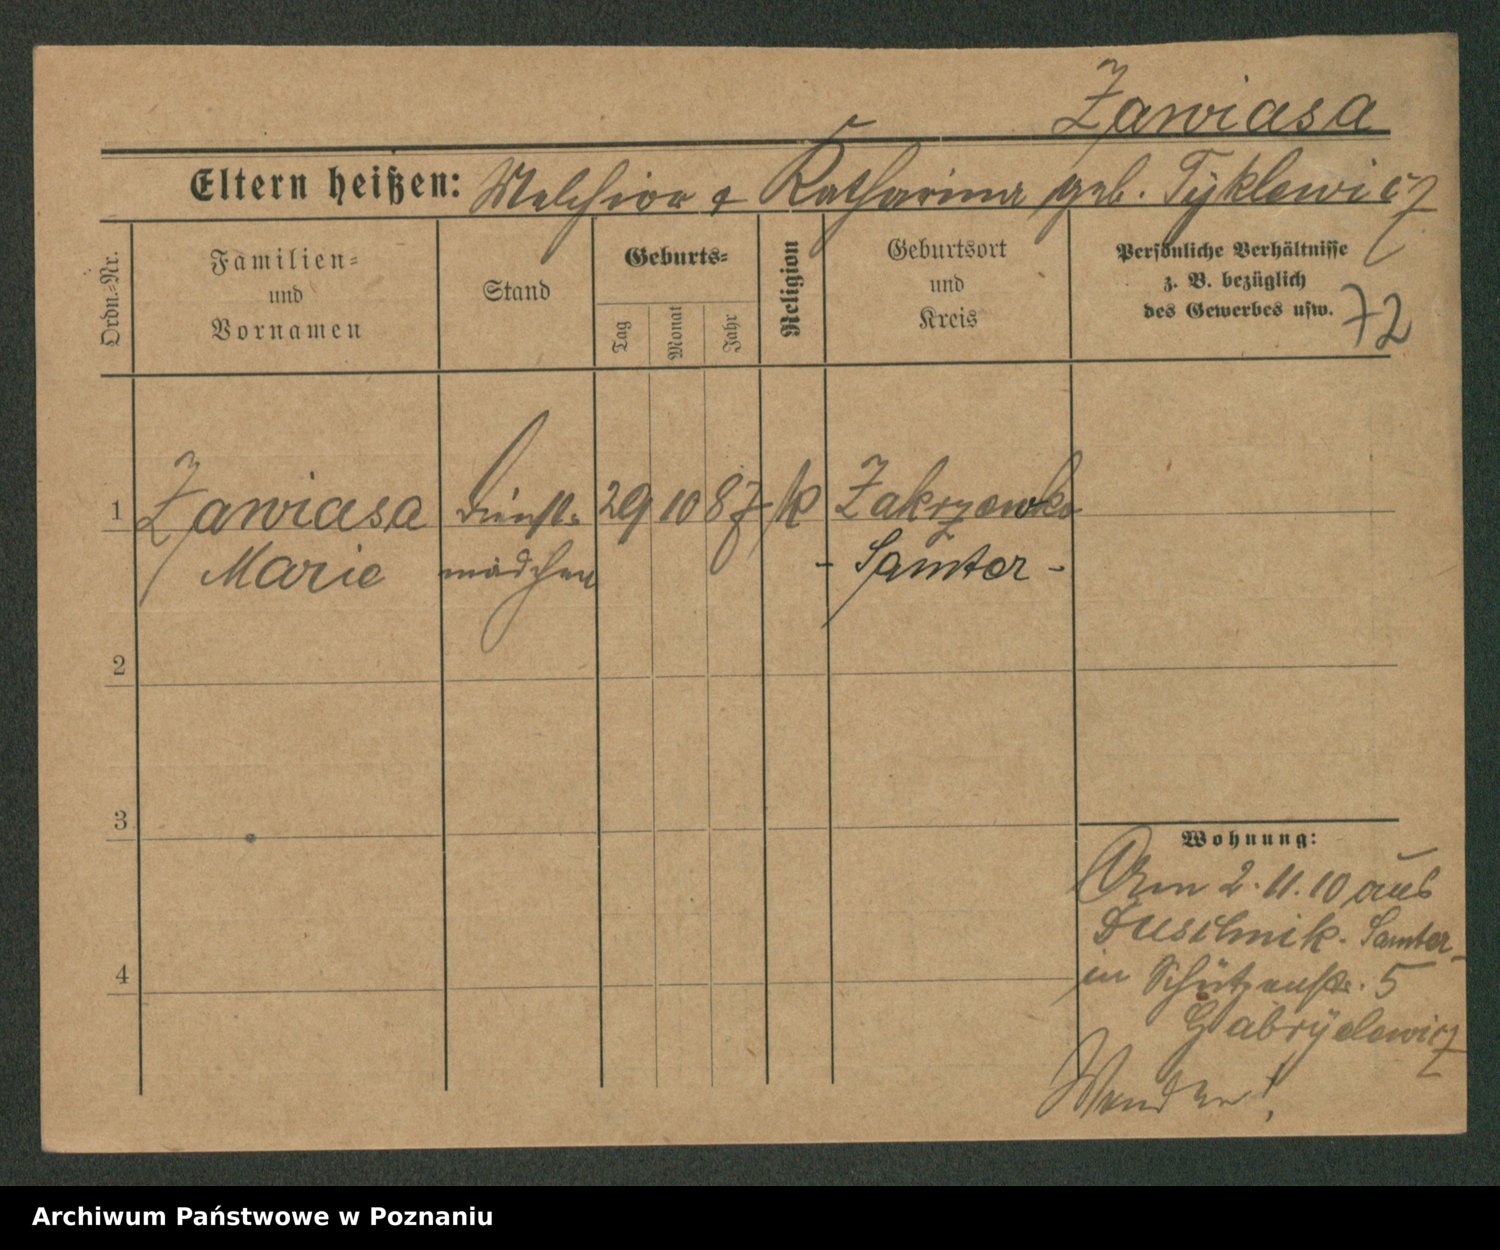 Zawiasa
Eltern heißen: Melchior & Katharina geb. Tyklewicz
Ordn.-Nr.
Familien-
und
Vornamen
Stand
Geburts-
Tag
Monat
Jahr
Religion
Geburtsort
und
Kreis
Persönliche Verhältnisse
z. B. bezüglich
des Gewerbes usw.
72
1 Zawiasa Dienst- 29 10 87 k Zakrzewko
Marie mädchen - Samter -
2
3
4
Wohnung:
Am 2.11.10 aus
Duschnik. Samter
in Schützenstr. 5
Gabryelewicz
Wenden!
Archiwum Państwowe w Poznaniu